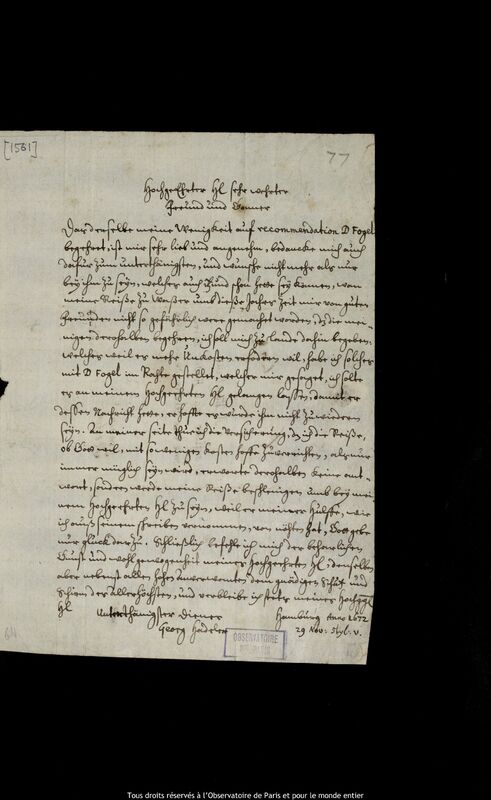 [1581]
77
Hochgeehrter Hl sehr wehrter
Freund und Gönner
Das derselbe meine Wenigkeit auf recommendation D Fogel
begehret, ist mir sehr lieb und angenehm, bedancke mich auch
dafür zum unterthänigsten, und wünsche nicht mehr als nur
bey ihm zu seyn, welches auch schon hette sey können, wan
meine Reise zu Waßer umb diese Jahres Zeit mir von guten
Freunden nicht so gefährlich were gemacht worden, die mei-
nigen derohalben begehren, ich soll mich zu Lande dahin begeben.
Welches weil es mehr Unkosten erfodern wil, habe ich solches
mit D Fogel im Rahte gestellet, welcher mir gesaget, ich solte
es an meinem Hochgeehrten Hl gelangen lassen, damit er
dessen Nachricht hette, er hoffte es würde ihm nicht zuwiedern
seyn. An meiner seite thue ich die Versicherung, das ich die Reise,
ob Gott wil, mit so wenigen Kosten hoffe zu verrichten, als nur
immer müglich seyn wird, erwarte derohalben keine ant-
wort, sondern werde meine Reise beschleunigen umb bey mei-
nem Hochgeehrten Hl zu seyn, weil er meiner Hülffe, wie
ich auß seinem schreiben vernommen, von nöhten hat, Gott gebe
nur glück darzu. Schließlich befehle ich mich der beharlichen
Gunst und wohlgewogenheit meines Hochgeehrten Hl, denselben
aber nebenst allen hohen Anverwanten dem gnädigen Schutz und
Schirm des Allerhöchsten, und verbleibe ich stets meines Hochgg
Hl
Unterthänigster Diener
Hamburg Anno 1672
29 Nov: Styl. v.
Georg
OBSERVATOIRE
DE PARIS
Tous droits réservés à l'Observatoire de Paris et pour le monde entier